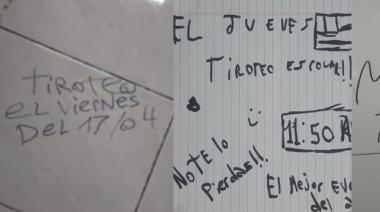 TIROTEO
EL VIERNES
DEL 17/04
EL JUEVES
TIROTEO ESCOLAR!!
11:50 A
NO TE lo
pierdas!!
El Mejor
del